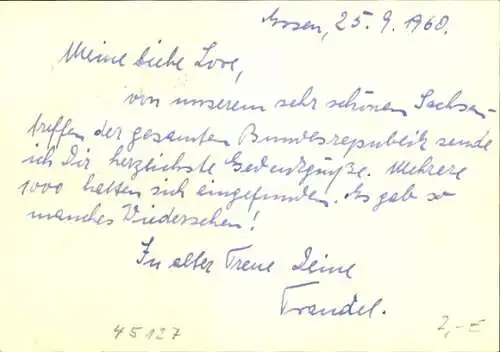 Essen, 25. 9. 1960.
Meine liebe Lore,
von unserem sehr schönen Sachsen-
treffen der gesamten Bundesrepublik sende
ich Dir herzlichste Gedenkgrüße. Mehrere
1000 hatten sich eingefunden. Es gab so
manches Wiedersehen!
In alter Treue Deine
Traudel.
45127
2,-€